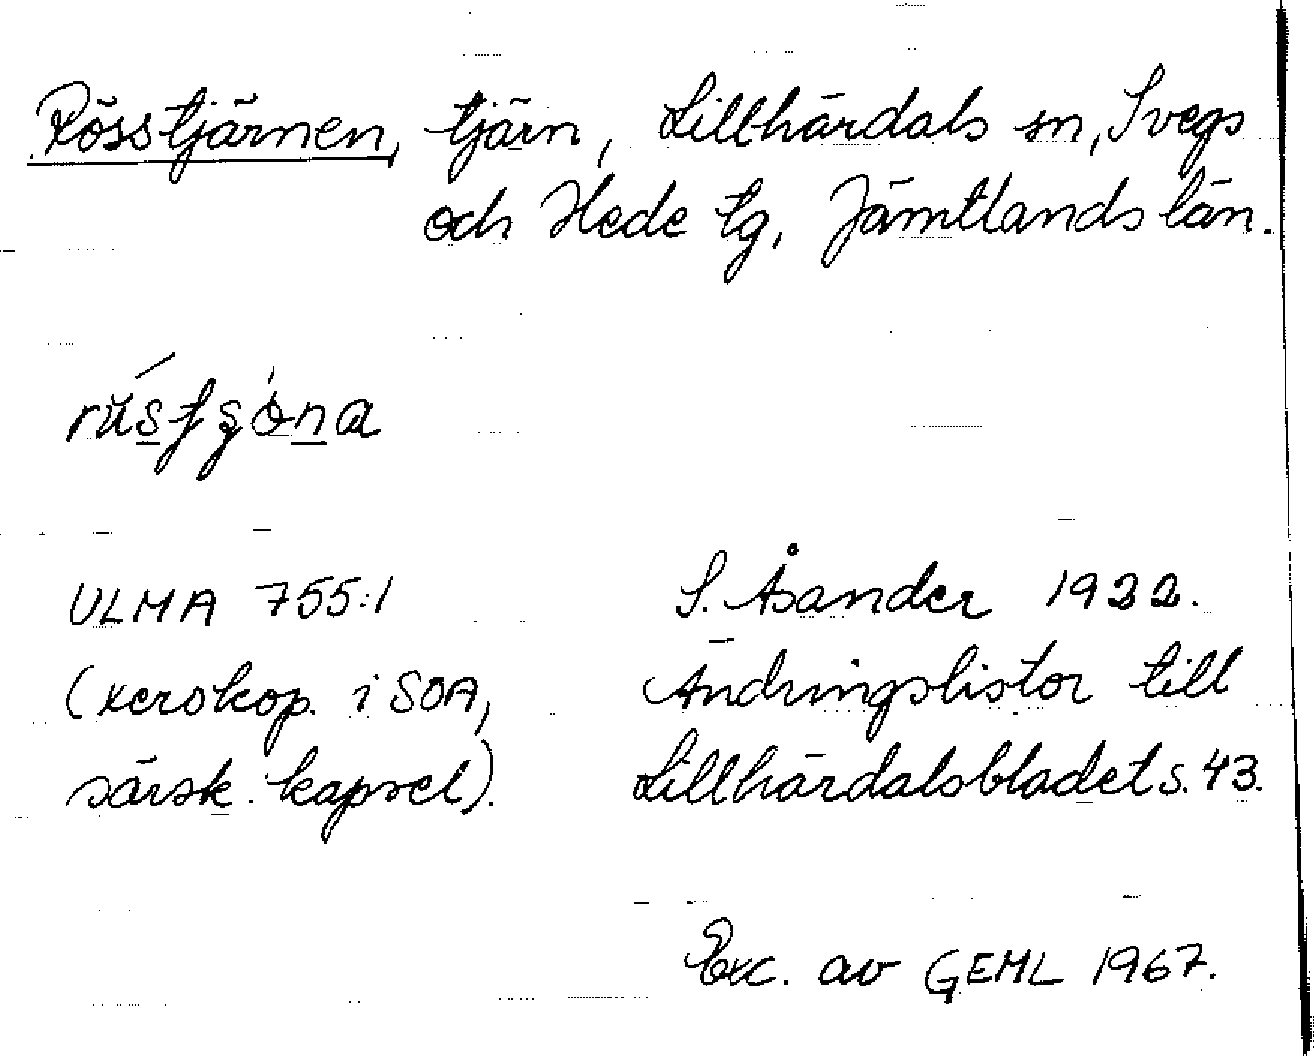 Rösstjärnen, tjärn, Lillhärdals sn, Svegs
och Hede tg, Jämtlands län.
ULMA 755:1
S. Åsander 1922.
(xerokop. i SOA,
Ändringslistor till
särsk. kapsel).
Lillhärdalsbladet s. 43.
Exc. av GEML 1967.